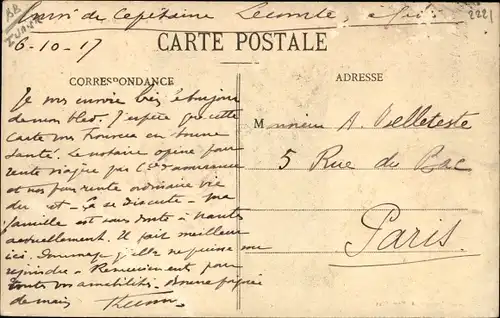 Envoi de Capitaine Lecomte,
6-10-17
CARTE POSTALE
CORRESPONDANCE
Je vous envoie bien le bonjour
de mon bled. J'espère que cette
carte vous trouvera en bonne
santé. Le notaire opine pour
rente viagère par Cie d'assurance
et non pour rente ordinaire vie
du et - Ça se discute - ma
famille est sans doute à Nantes
actuellement. Il fait meilleur
ici. Dommage qu'elle ne puisse me
rejoindre - Remerciements pour
toutes vos amabilités. Bonne poignée
de main
ADRESSE
Monsieur A. Velleteste
5 Rue du Bac
Paris.